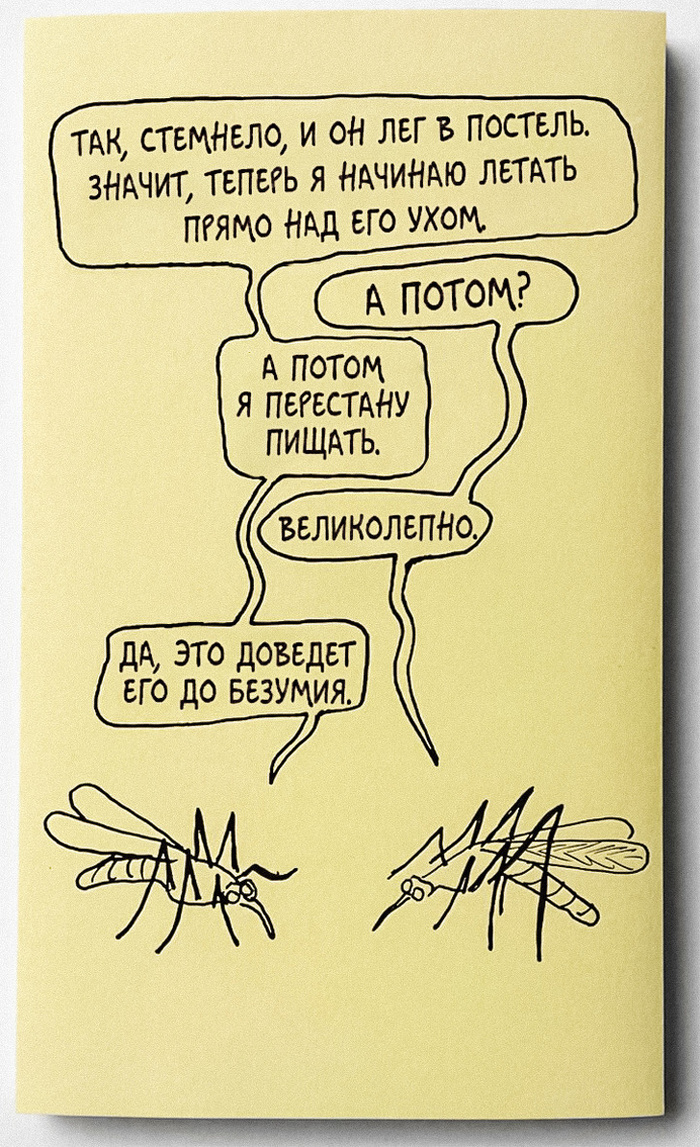 ТАК, СТЕМНЕЛО, И ОН ЛЕГ В ПОСТЕЛЬ.
ЗНАЧИТ, ТЕПЕРЬ Я НАЧИНАЮ ЛЕТАТЬ
ПРЯМО НАД ЕГО УХОМ.
А ПОТОМ?
А ПОТОМ
Я ПЕРЕСТАНУ
ПИЩАТЬ.
ВЕЛИКОЛЕПНО.
ДА, ЭТО ДОВЕДЕТ
ЕГО ДО БЕЗУМИЯ.